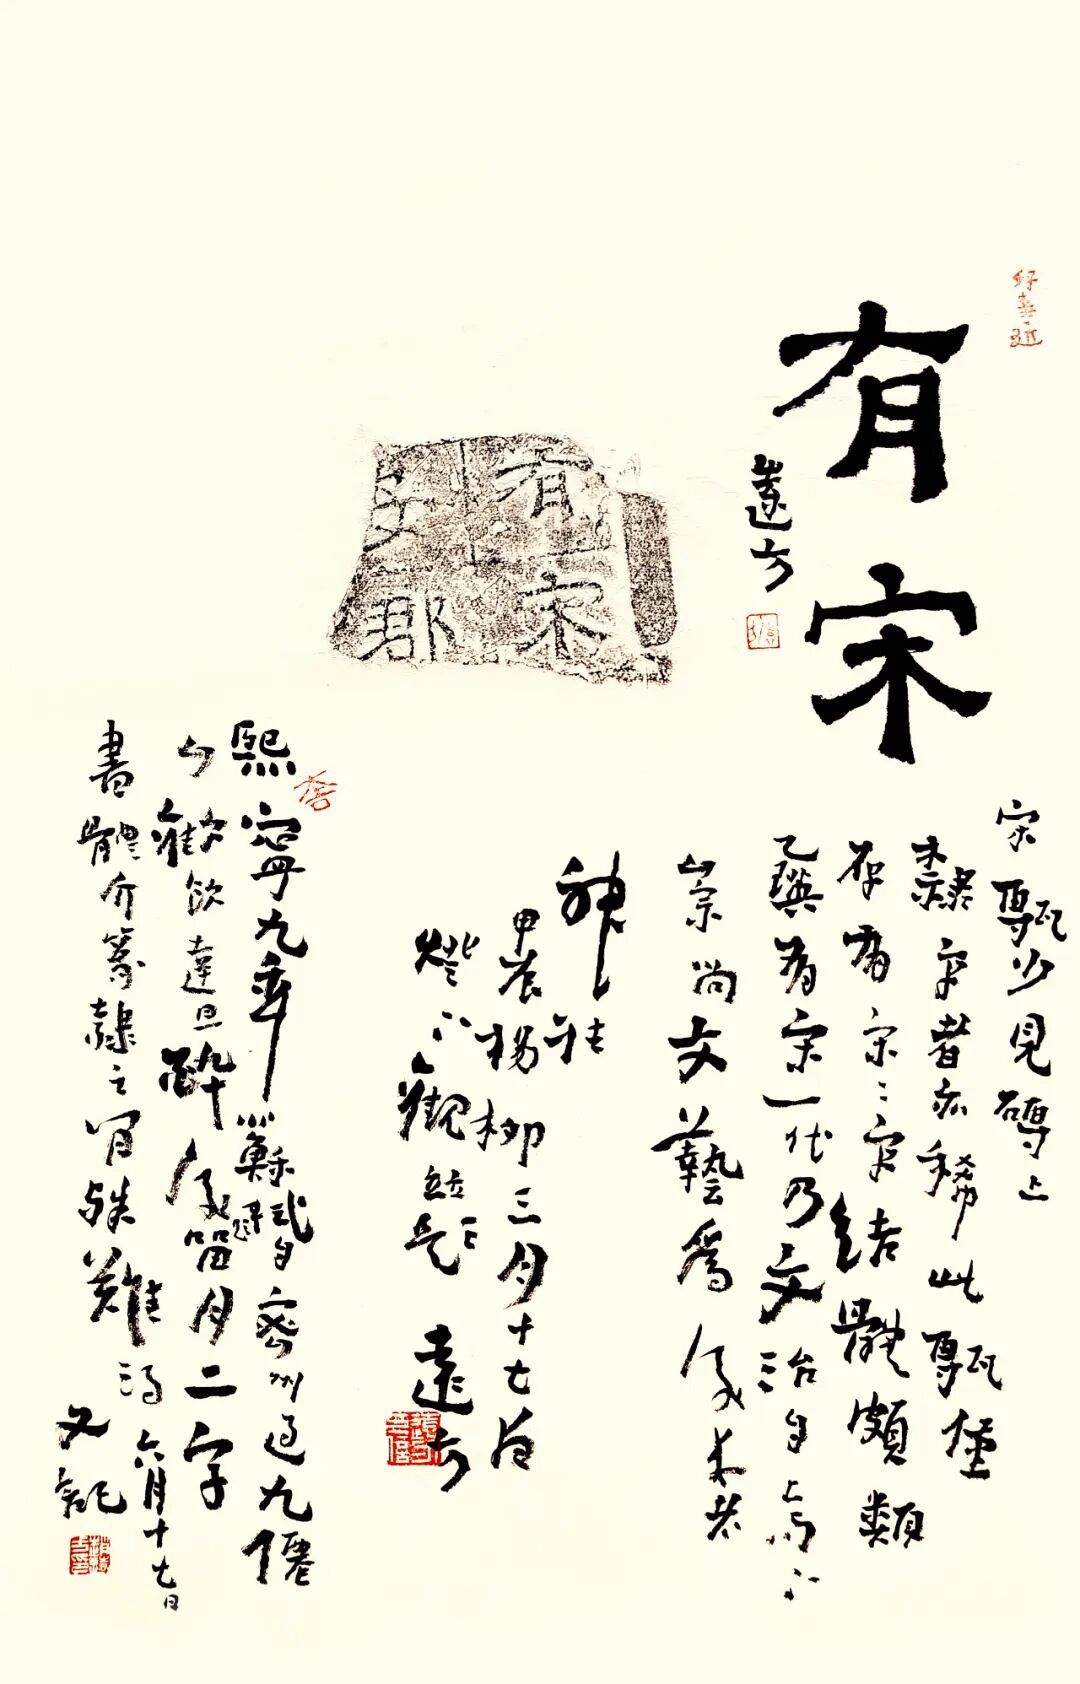 有宋
遠方
有宋
郡
宋甎少見磚上
隸字者亦稀此甎僅
存有宋二字結體頗類
乙瑛有宋一代乃文治自上而下
崇尚文藝為
甲辰楊柳三月十七日
燈下觀並題 遠方
熙寧九年蘇軾自密州過九僊
山歡飲達旦醉後留月二字
書體介篆隸之間殊難得六月十七日
又記